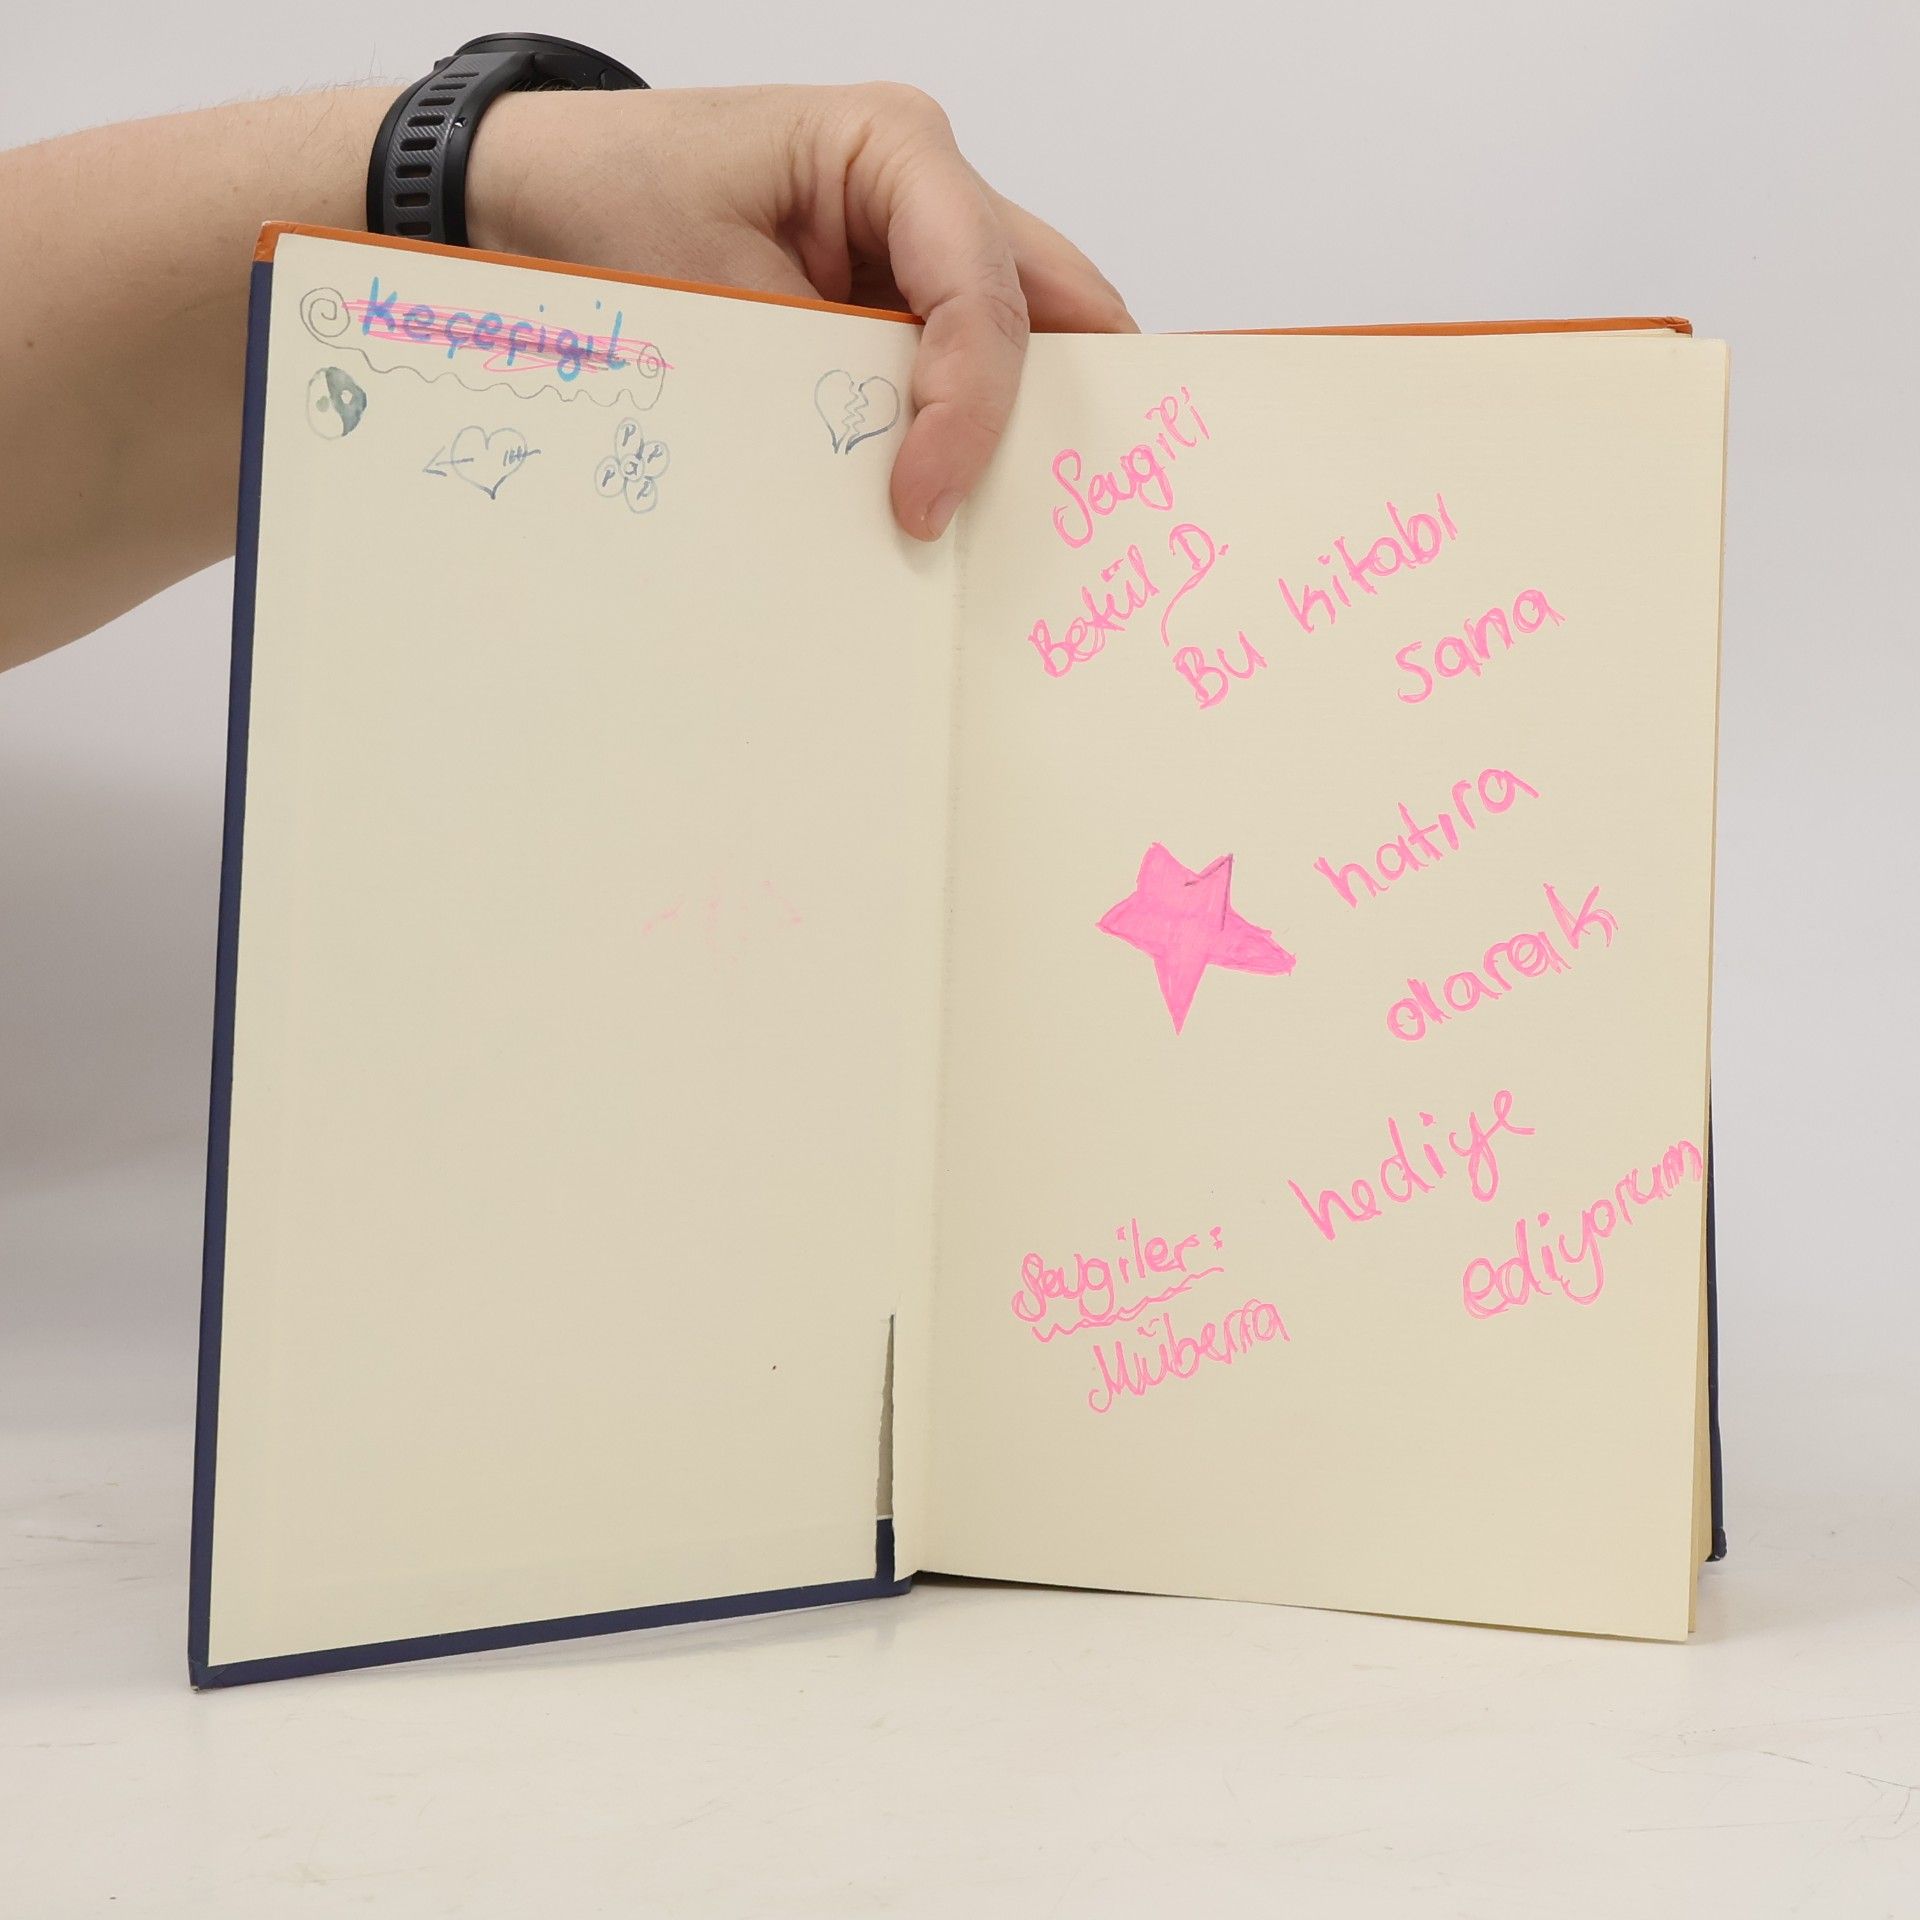 Keçeçigil
P
P
a
P
P
P
Sevgili
Betül D.
Bu kitabı
sana
hatıra
olarak
hediye
ediyorum
Sevgiler:
Müberra